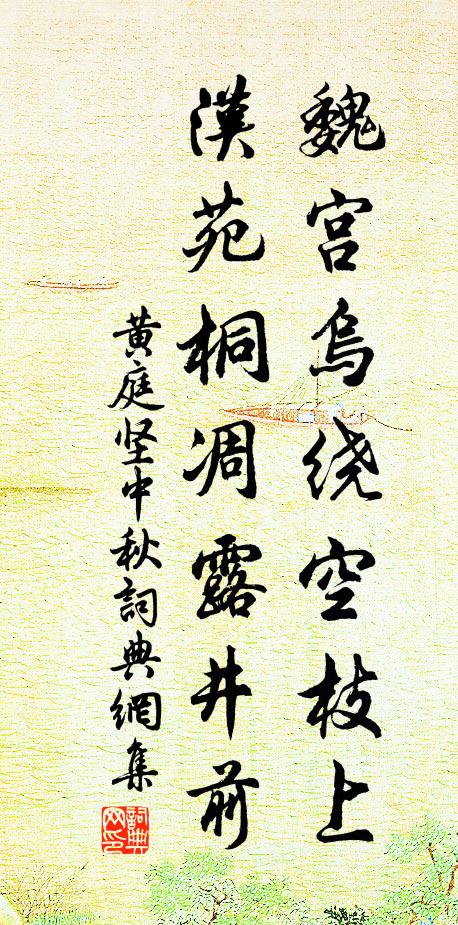 魏宫烏绕空枝上
漢苑桐凋露井前
黄庭坚中秋詞典網集
詞典网印